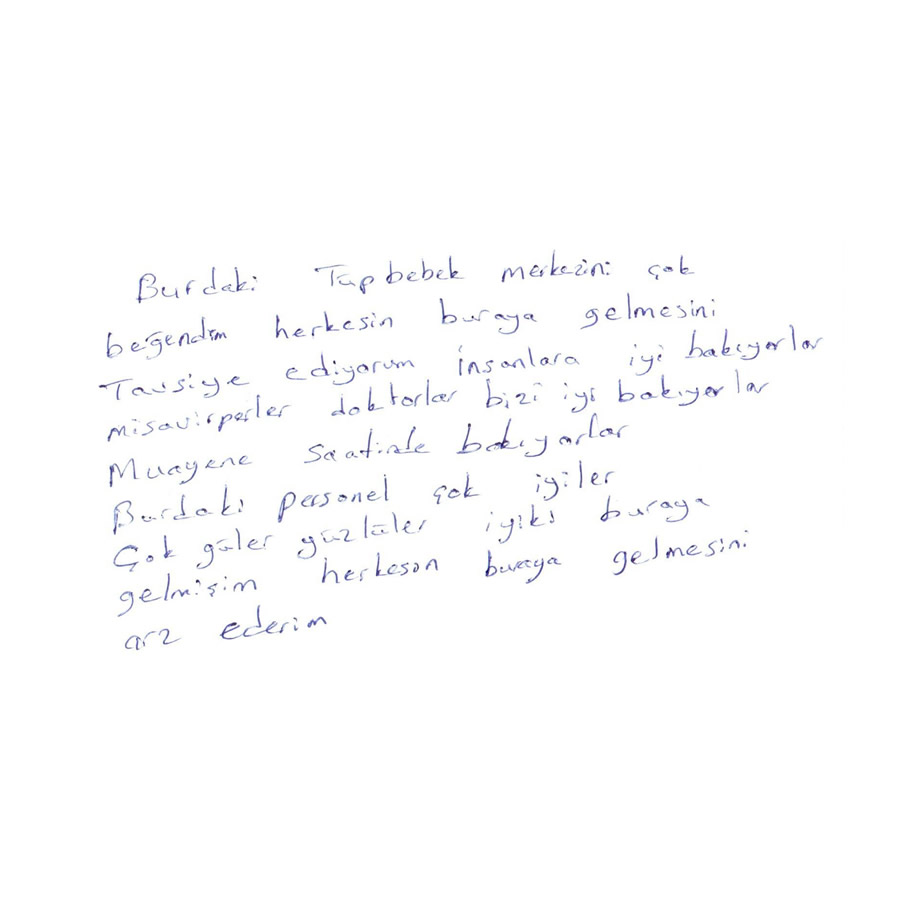 Burdaki Tüpbebek merkezini çok
beğendim herkesin buraya gelmesini
Tavsiye ediyorum insanlara iyi bakıyorlar
misavirperler doktorlar bizi iyi bakıyorlar
Muayene saatinde bakıyorlar
Burdaki personel çok iyiler
Çok güler yüzlüler iyiki buraya
gelmişim herkesin buraya gelmesini
arz ederim